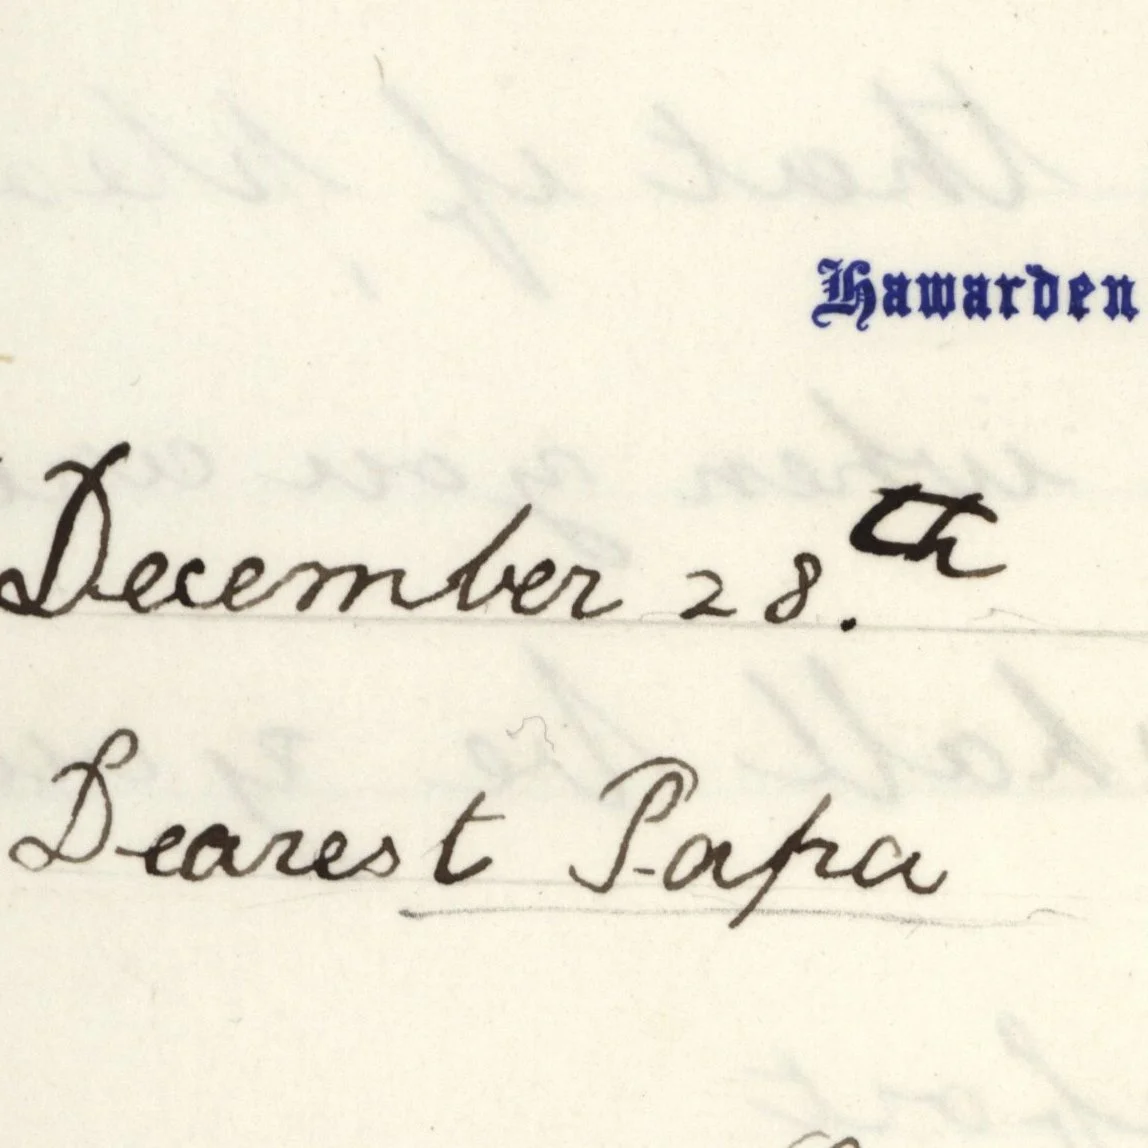 Hawarden
December 28.th
Dearest Papa